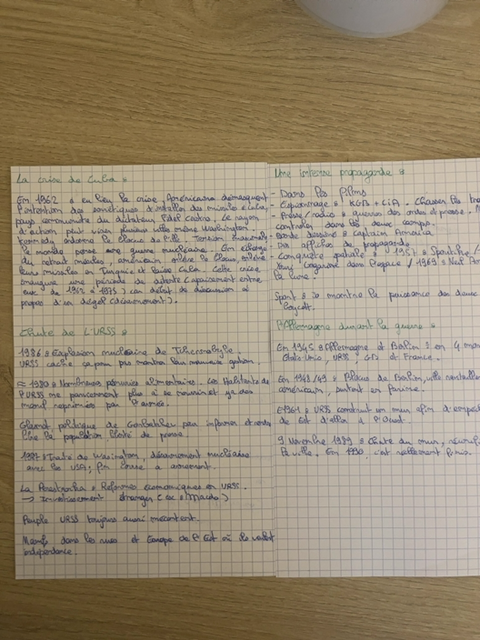 La crise de Cuba :
En 1962 : eu lieu la crise, Américains démasquent
l'intention des soviétiques d'installer des missiles à Cuba
pays communiste du dictateur Fidel Castro. Le rayon
d'action peut viser plusieurs villes même Washington
Kennedy ordonne le blocus de l'île. Tension
le monde pense une guerre nucléaire. En échange
du retrait
leurs missiles en Turquie et Cuba. Cette crise
une période de détente (apaisement entre
eux 2 de 1963 à 1975) car début de discussion à
propos d'un dégel (désarmement).
Chute de L'URSS :
1986 : Explosion nucléaire de Tchernobyle.
URSS cache ça pour pas montrer leur mauvaise gestion.
≈ 1980 : Nombreuses pénuries alimentaires. Les Habitants de
l'URSS ne parviennent plus à se nourrir et ya des
manif reprimées par l'armée.
Glasnot, politique de Gorbatchev pour informer et rendre
libre la population liberté de presse.
1987 : Traité de Wasington, désarmement nucléaire
avec les USA, fin course à armement.
La Perestroïka : Réformes économiques en URSS.
→ Investissement étranger (ex : Macdo)
Peuple URSS toujours aussi mécontent.
Manifs dans les rues et Europe de l'Est où ils veulent
indépendance.
Une Intense propagande :
- Dans les films
- Espionnage : KGB ≠ CIA - Chasser les
- Presse/radio : guerres des ondes et presse.
controlée dans les deux camps.
- Bande dessinée : Captain America
- Des affiches de propagande.
- Conquête spatiale : 1957 : Spoutnik /
Youri Gagarine dans l'espace / 1969 : Neil
la lune.
Sport : ils montre la puissance des deux
boycott.
l'Allemagne durant la guerre :
En 1945 : Allemagne et Berlin : en 4
États-Unis, URSS, GB et France.
En 1948/49 : Blocus de Berlin,
américain,
En 1961 : URSS construit un mur afin d'
de Est d'aller à l'Ouest.
9 Novembre 1989 : Chute du mur,
la ville. En 1990 c'est réellement